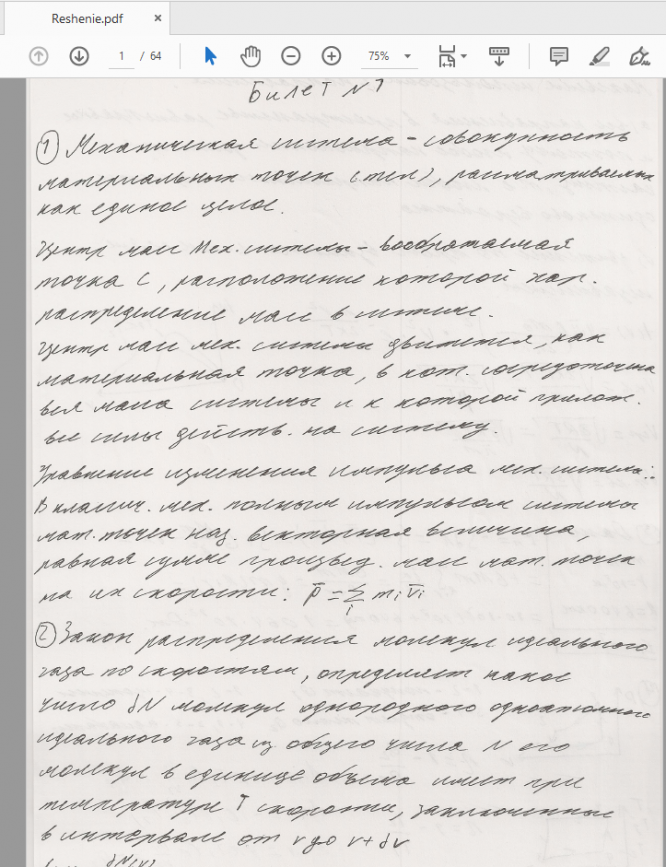 Reshenie.pdf ×
1 / 64 75%
Билет №1
① Механическая система - совокупность
материальных точек (тел), рассматриваемых
как единое целое.
Центр масс мех. системы - воображаемая
точка С, расположение которой хар.
распределение масс в системе.
Центр масс мех. системы движется, как
материальная точка, в кот. сосредоточена
вся масса системы и к которой прилож.
все силы действ. на систему.
Уравнение изменения импульса мех. системы:
В классич. мех. полным импульсом системы
мат. точек наз. векторная величина,
равная сумме произвед. масс мат. точек
на их скорости: p̄ = ∑ᵢ mᵢ v̄ᵢ
② Закон распределения молекул идеального
газа по скоростям, определяет какое
число dN молекул однородного одноатомного
идеального газа из общего числа N его
молекул в единице объёма имеет при
температуре T скорости, заключенные
в интервале от v до v + dv
dN(v)